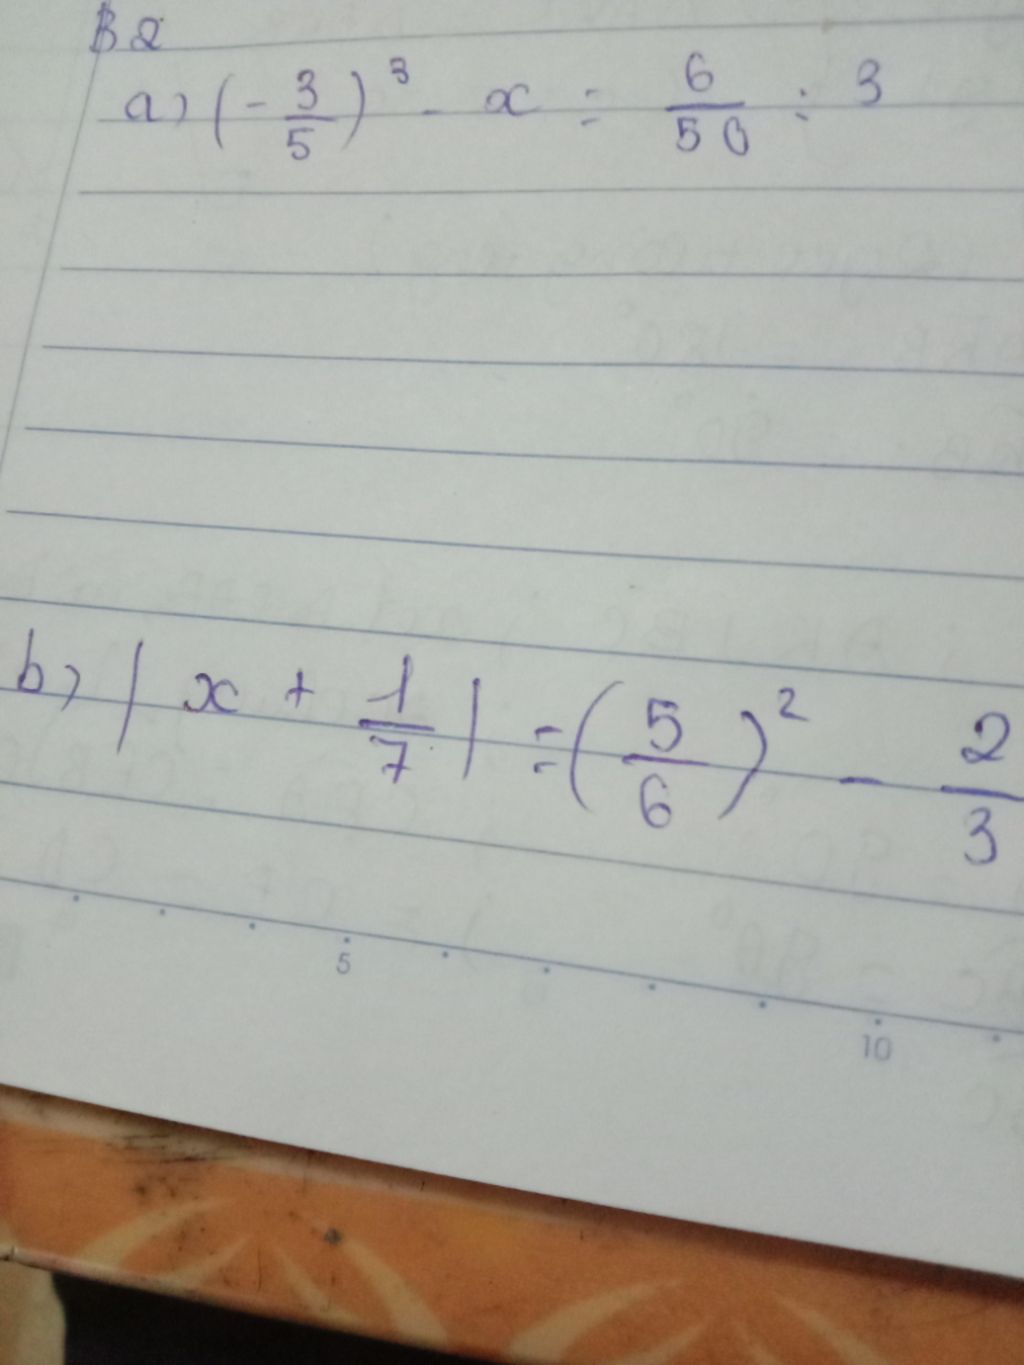 B2
a) (-3/5)^3 - x = 6/50 : 3
b) |x + 1/7| = (5/6)^2 - 2/3
5
10